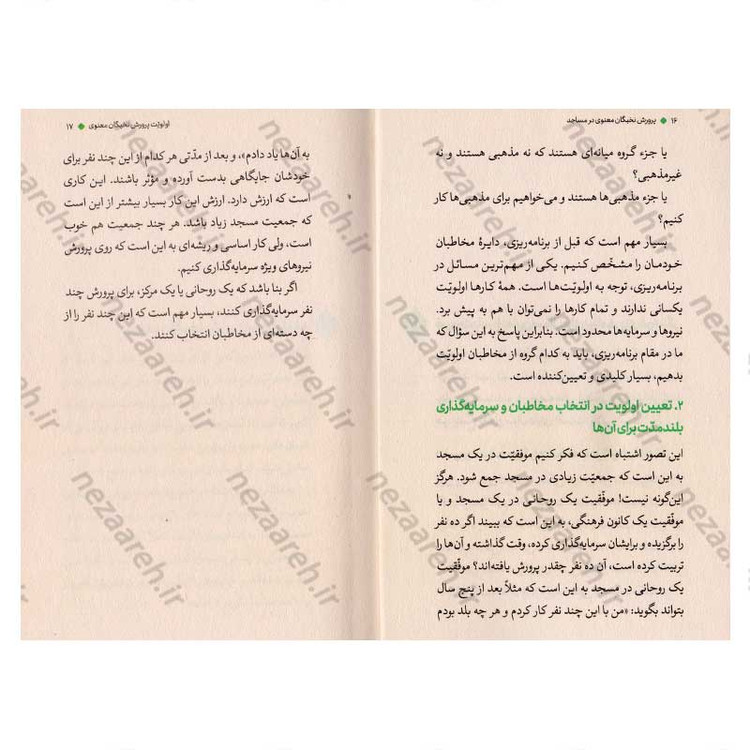 ۱۶ ◆ پرورش نخبگان معنوی در مساجد
یا جزء گروه میانه‌ای هستند که نه مذهبی هستند و نه
غیرمذهبی؟
یا جزء مذهبی‌ها هستند و می‌خواهیم برای مذهبی‌ها کار
کنیم؟
بسیار مهم است که قبل از برنامه‌ریزی، دایرۀ مخاطبان
خودمان را مشخّص کنیم. یکی از مهم‌ترین مسائل در
برنامه‌ریزی، توجه به اولویّت‌ها است. همۀ کارها اولویّت
یکسانی ندارند و تمام کارها را نمی‌توان با هم به پیش برد.
نیروها و سرمایه‌ها محدود است. بنابراین پاسخ به این سؤال که
ما در مقام برنامه‌ریزی، باید به کدام گروه از مخاطبان اولویّت
بدهیم، بسیار کلیدی و تعیین‌کننده است.
۲. تعیین اولویت در انتخاب مخاطبان و سرمایه‌گذاری
بلندمدّت برای آن‌ها
این تصور اشتباه است که فکر کنیم موفقیّت در یک مسجد
به این است که جمعیّت زیادی در مسجد جمع شود. هرگز
این‌گونه نیست! موفّقیت یک روحانی در یک مسجد و یا
موفّقیت یک کانون فرهنگی، به این است که ببیند اگر ده نفر
را برگزیده و برایشان سرمایه‌گذاری کرده، وقت گذاشته و آن‌ها را
تربیت کرده است، آن ده نفر چقدر پرورش یافته‌اند؟ موفقیّت
یک روحانی در مسجد به این است که مثلاً بعد از پنج سال
بتواند بگوید: «من با این چند نفر کار کردم و هر چه بلد بودم
اولویّت پرورش نخبگان معنوی ◆ ۱۷
به آن‌ها یاد دادم»، و بعد از مدّتی هر کدام از این چند نفر برای
خودشان جایگاهی بدست آورده و مؤثر باشند. این کاری
است که ارزش دارد. ارزش این کار بسیار بیشتر از این است
که جمعیت مسجد زیاد باشد. هر چند جمعیت هم خوب
است، ولی کار اساسی و ریشه‌ای به این است که روی پرورش
نیروهای ویژه سرمایه‌گذاری کنیم.
اگر بنا باشد که یک روحانی یا یک مرکز، برای پرورش چند
نفر سرمایه‌گذاری کنند، بسیار مهم است که این چند نفر را از
چه دسته‌ای از مخاطبان انتخاب کنند.
nezaareh.ir